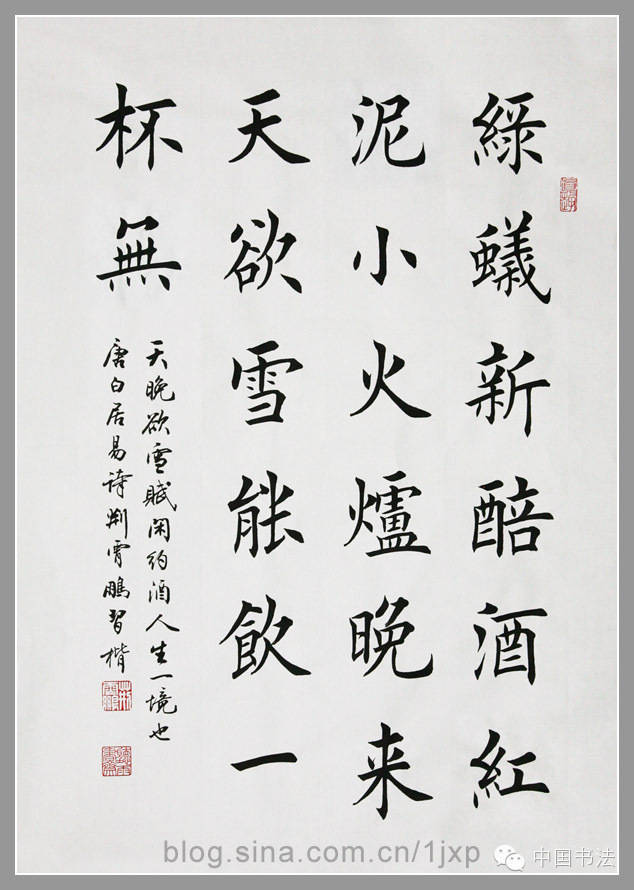 綠蟻新醅酒紅
泥小火爐晚来
天欲雪能飲一
杯無
天晚欲雪賦闲約酒人生一境也
唐白居易詩荆霄鵬習楷
blog.sina.com.cn/1jxp
中国书法